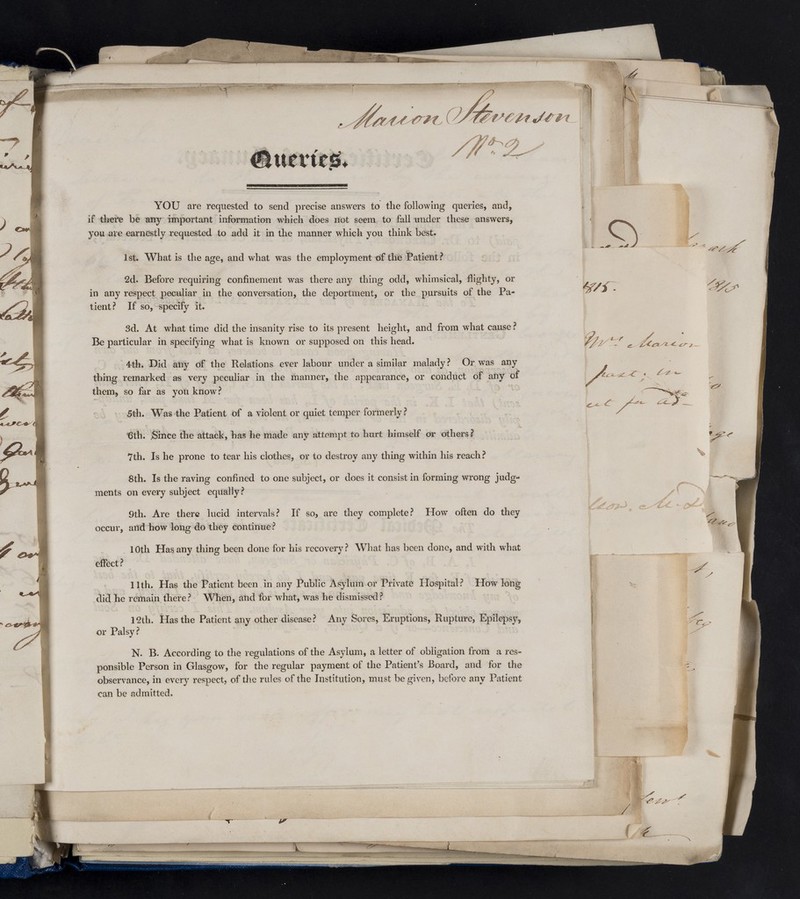 Marion Stevenson
No. 2
Queries.
YOU are requested to send precise answers to the following queries, and,
if there be any important information which does not seem to fall under these answers,
you are earnestly requested to add it in the manner which you think best.
1st. What is the age, and what was the employment of the Patient?
2d. Before requiring confinement was there any thing odd, whimsical, flighty, or
in any respect peculiar in the conversation, the deportment, or the pursuits of the Pa-
tient? If so, specify it.
3d. At what time did the insanity rise to its present height, and from what cause?
Be particular in specifying what is known or supposed on this head.
4th. Did any of the Relations ever labour under a similar malady? Or was any
thing remarked as very peculiar in the manner, the appearance, or conduct of any of
them, so far as you know?
5th. Was the Patient of a violent or quiet temper formerly?
6th. Since the attack, has he made any attempt to hurt himself or others?
7th. Is he prone to tear his clothes, or to destroy any thing within his reach?
8th. Is the raving confined to one subject, or does it consist in forming wrong judg-
ments on every subject equally?
9th. Are there lucid intervals? If so, are they complete? How often do they
occur, and how long do they continue?
10th Has any thing been done for his recovery? What has been done, and with what
effect?
11th. Has the Patient been in any Public Asylum or Private Hospital? How long
did he remain there? When, and for what, was he dismissed?
12th. Has the Patient any other disease? Any Sores, Eruptions, Rupture, Epilepsy,
or Palsy?
N. B. According to the regulations of the Asylum, a letter of obligation from a res-
ponsible Person in Glasgow, for the regular payment of the Patient's Board, and for the
observance, in every respect, of the rules of the Institution, must be given, before any Patient
can be admitted.
1815.
1815
Marion